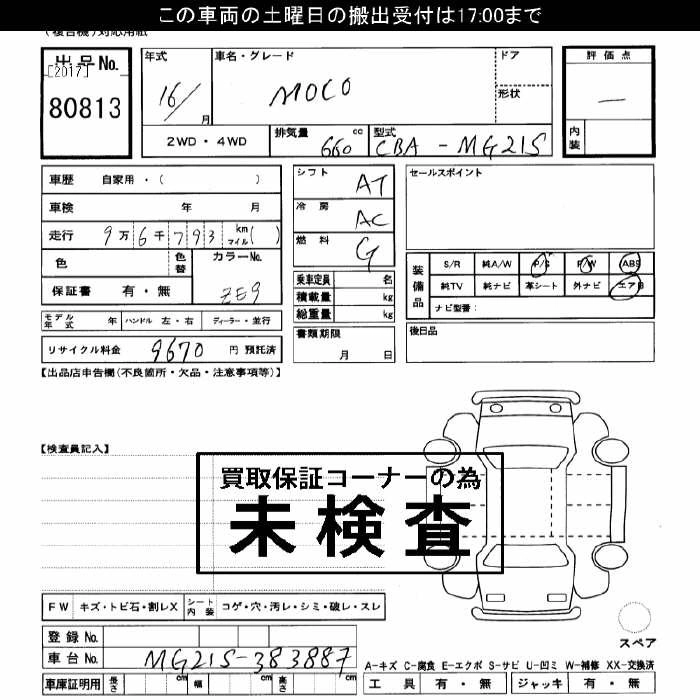 この車両の土曜日の搬出受付は17:00まで
(複合機)対応用紙
出品No.
[2017]
80813
年式
16/
月
車名・グレード
MOCO
ドア
形状
評価点
—
内装
2WD・4WD
排気量
660
cc
型式
CBA-MG21S
車歴 自家用・( )
車検 年 月
走行 9万6千793 km マイル( )
色
色替
カラーNo.
ZE9
保証書 有・無
モデル年式 年
ハンドル 左・右
ディーラー・並行
リサイクル料金 9670 円 預託済
シフト AT
冷房 AC
燃料 G
乗車定員 名
積載量 kg
総重量 kg
書類期限
月 日
セールスポイント
装備品
S/R 純A/W P/S P/W ABS
純TV 純ナビ 革シート 外ナビ エアB
ナビ型番:
後日品
【出品店申告欄(不良箇所・欠品・注意事項等)】
【検査員記入】
買取保証コーナーの為
未検査
FW キズ・トビ石・割レX
シート内装 コゲ・穴・汚レ・シミ・破レ・スレ
登録No.
車台No. MG21S-383887
車庫証明用 長さ cm 幅 cm 高さ cm
スペア
A-キズ C-腐食 E-エクボ S-サビ U-凹ミ W-補修 XX-交換済
工具 有・無
ジャッキ 有・無